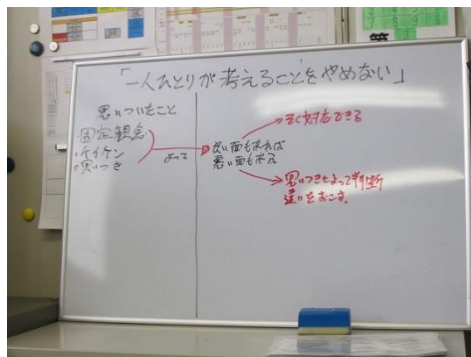 「一人ひとりが考えることをやめない」
思いついたこと
固定観念
・ケイケン
・思いつき
よって
良い面もあれば
悪い面もある
早く対応できる
思いつきによって判断
違いをおこす。